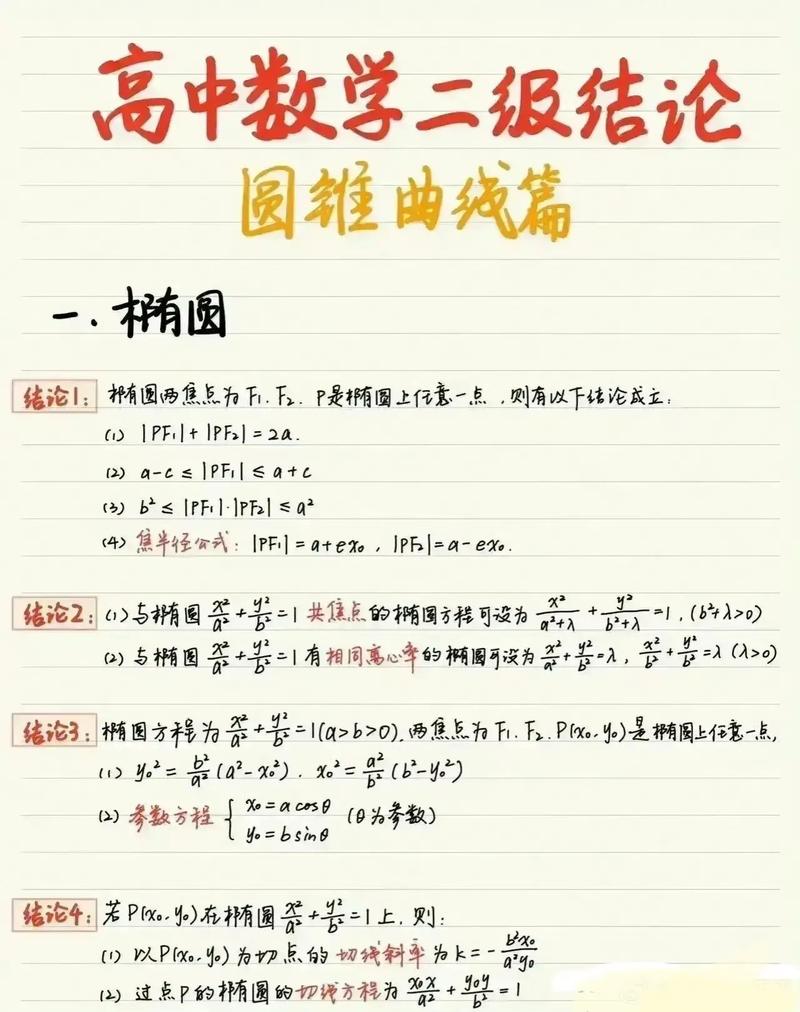 高中数学二级结论
圆锥曲线篇
一.椭圆
结论1: 椭圆两焦点为F₁.F₂. P是椭圆上任意一点,则有以下结论成立:
(1) |PF₁|+|PF₂|=2a.
(2) a-c≤|PF₁|≤a+c
(3) b²≤|PF₁|·|PF₂|≤a²
(4) 焦半径公式: |PF₁|=a+ex₀, |PF₂|=a-ex₀.
结论2: (1)与椭圆x²/a²+y²/b²=1共焦点的椭圆方程可设为x²/(a²+λ)+y²/(b²+λ)=1,(b²+λ>0)
(2) 与椭圆x²/a²+y²/b²=1有相同离心率的椭圆可设为x²/a²+y²/b²=λ, x²/b²+y²/a²=λ(λ>0)
结论3: 椭圆方程为x²/a²+y²/b²=1(a>b>0).两焦点为F₁.F₂.P(x₀.y₀)是椭圆上任意一点,
(1) y₀²=b²/a²(a²-x₀²). x₀²=a²/b²(b²-y₀²)
(2) 参数方程{x₀=acosθ
y₀=bsinθ (θ为参数)
结论4: 若P(x₀.y₀)在椭圆x²/a²+y²/b²=1上,则:
(1) 以P(x₀.y₀)为切点的切线斜率为k=-b²x₀/a²y₀
(2) 过点P的椭圆的切线方程为x₀x/a²+y₀y/b²=1